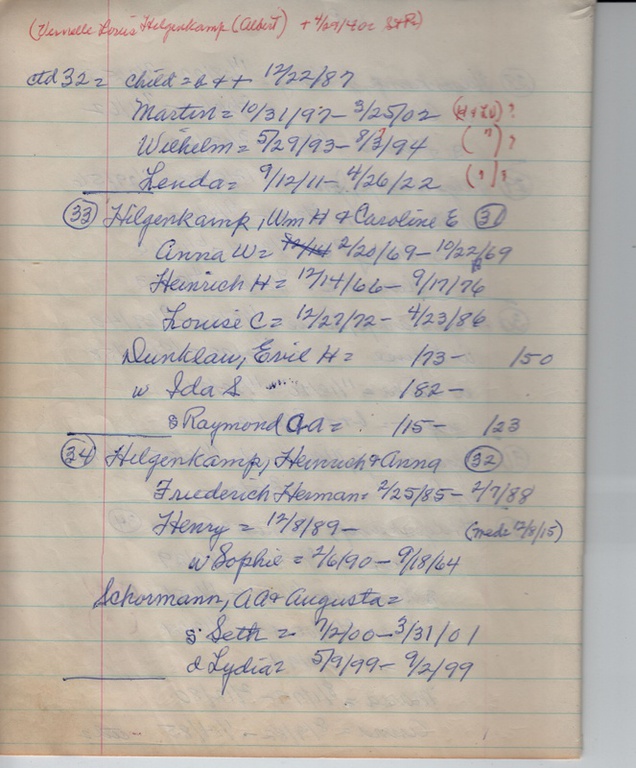 (Vernelle Louis Hilgenkamp (Albert) + 4/29/40
ctd 32 = Child = b + + 12/22/87
Martin = 10/31/97 - 3/25/02 ?
Wilhelm = 5/29/93 - 8/3/94 (") ?
Lenda = 9/12/11 - 4/26/22 (") ?
33 Hilgenkamp, Wm H & Caroline E 31
Anna W = 2/20/69 - 10/22/69
Heinrich H = 12/14/66 - 9/17/76
Louise C = 12/27/72 - 4/23/86
Dunklau, Emil H = /73 - /50
w Ida S /82 -
s Raymond A = /15 - /23
34 Hilgenkamp, Heinrich & Anna 32
Friederich Herman = 2/25/85 - 2/7/88
Henry = 12/8/89 - 12/8/15)
w Sophie = 2/6/90 - 9/18/64
Schormann, AA & Augusta =
s Seth = 7/2/00 - 3/31/01
d Lydia = 5/9/99 - 9/2/99